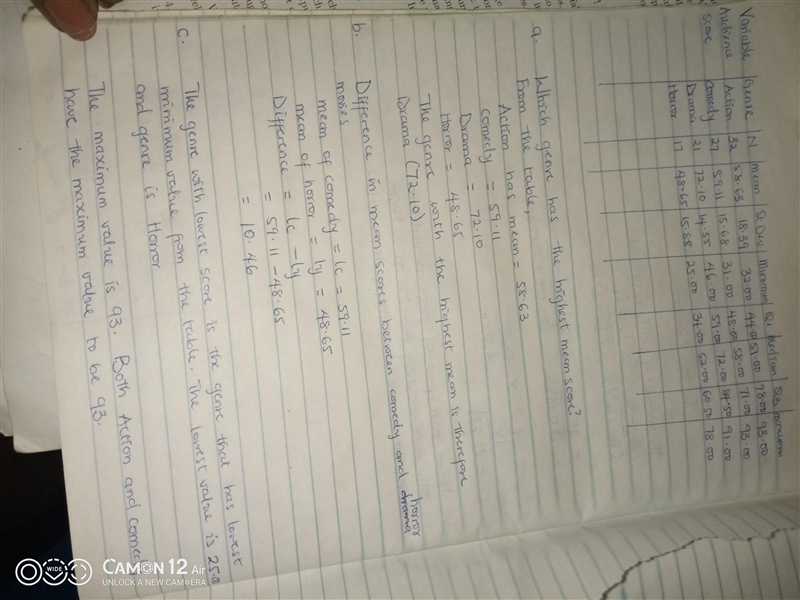 Variable Genre N mean St. Dev Minimum Q1 Median Q3 maximum
Audience Action 32 58.63 18.39 32.00 44.00 51.00 78.00 93.00
score Comedy 27 59.11 15.68 31.00 48.00 58.00 71.00 93.00
Drama 21 72.10 14.55 46.00 59.00 72.00 84.50 91.00
Horror 17 48.65 15.88 25.00 34.00 52.00 60.50 78.00
a. Which genre has the highest mean score?
From the table,
Action has mean = 58.63
Comedy = 59.11
Drama = 72.10
Horror = 48.65
The genre with the highest mean is therefore
Drama (72.10)
b. Difference in mean scores between comedy and drama horror
movies
mean of comedy = lc = 59.11
mean of horror = ly = 48.65
Difference = lc - ly
= 59.11 - 48.65
= 10.46
c. The genre with lowest score is the genre that has lowest
minimum value from the table. The lowest value is 25.0
and genre is Horror
The maximum value is 93. Both Action and comedy
have the maximum value to be 93.
WIDE
CAMON 12 Air
UNLOCK A NEW CAM=ERA